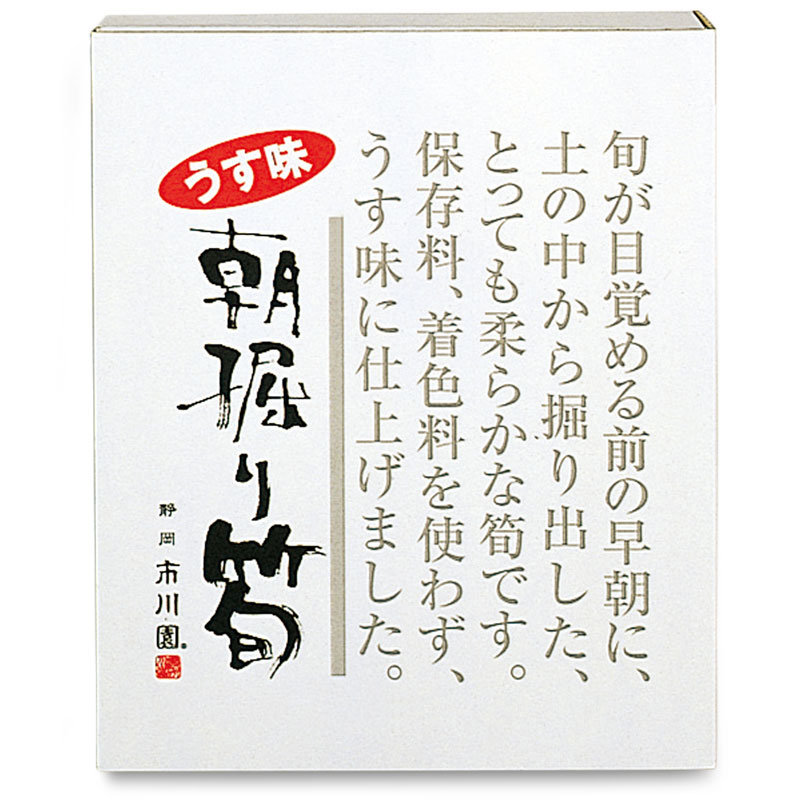 旬が目覚める前の早朝に、
土の中から掘り出した、
とっても柔らかな筍です。
保存料、着色料を使わず、
うす味に仕上げました。
うす味
朝掘り筍
静岡
市川園®